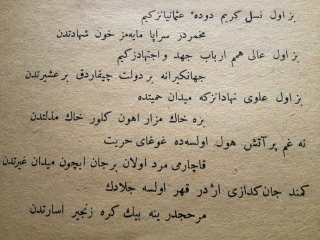 بز اول نسل كريم دودهٔ عثمانیانزكيم
مخمردر سراپا مایه‌مز خون شهادتدن
بز اول عالی همم ارباب جهد و اجتهادزكيم
جهانكیرانه بر دولت چیقاردق بر عشیرتدن
بز اول علوی نهادانزكه میدان حمیتده
بزه خاك مزار اهون كلور خاك مذلتدن
نه غم پر آتش هول اولسه‌ده غوغای حریت
قاچارمی مرد اولان بر جان ایچون میدان غیرتدن
كمند جان‌كدازی اژدر قهر اولسه جلادك
مرجحدر ینه بیك كره زنجیر اسارتدن